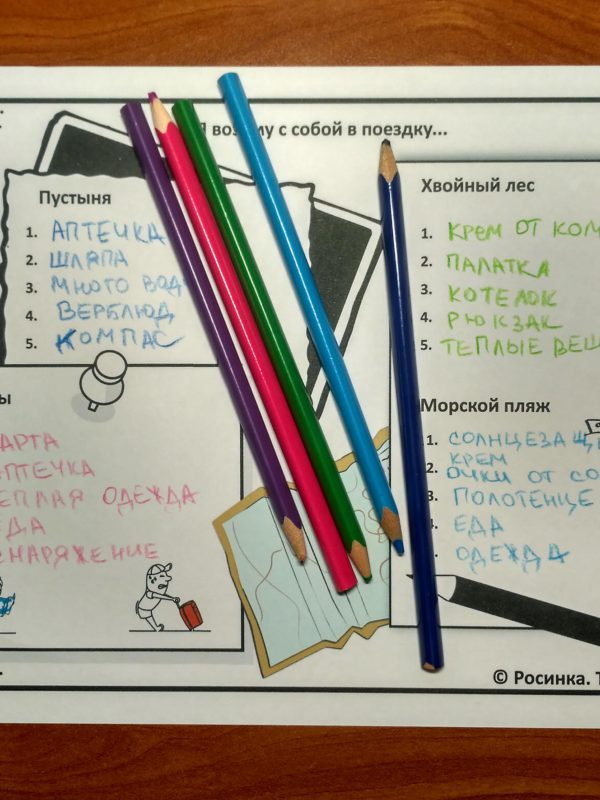 Я возьму с собой в поездку...
Пустыня
1. АПТЕЧКА
2. ШЛЯПА
3. МНОГО ВОД
4. ВЕРБЛЮД
5. КОМПАС
ы
АРТА
ПТЕЧКА
ЕПЛАЯ ОДЕЖДА
ЕДА
СНАРЯЖЕНИЕ
Хвойный лес
1. КРЕМ ОТ КОМ
2. ПАЛАТКА
3. КОТЕЛОК
4. РЮКЗАК
5. ТЕПЛЫЕ ВЕЩ
Морской пляж
1. СОЛНЦЕЗАЩИ
КРЕМ
2. ОЧКИ ОТ СО
3. ПОЛОТЕНЦЕ
ЕДА
ОДЕЖДА
© Росинка. Т